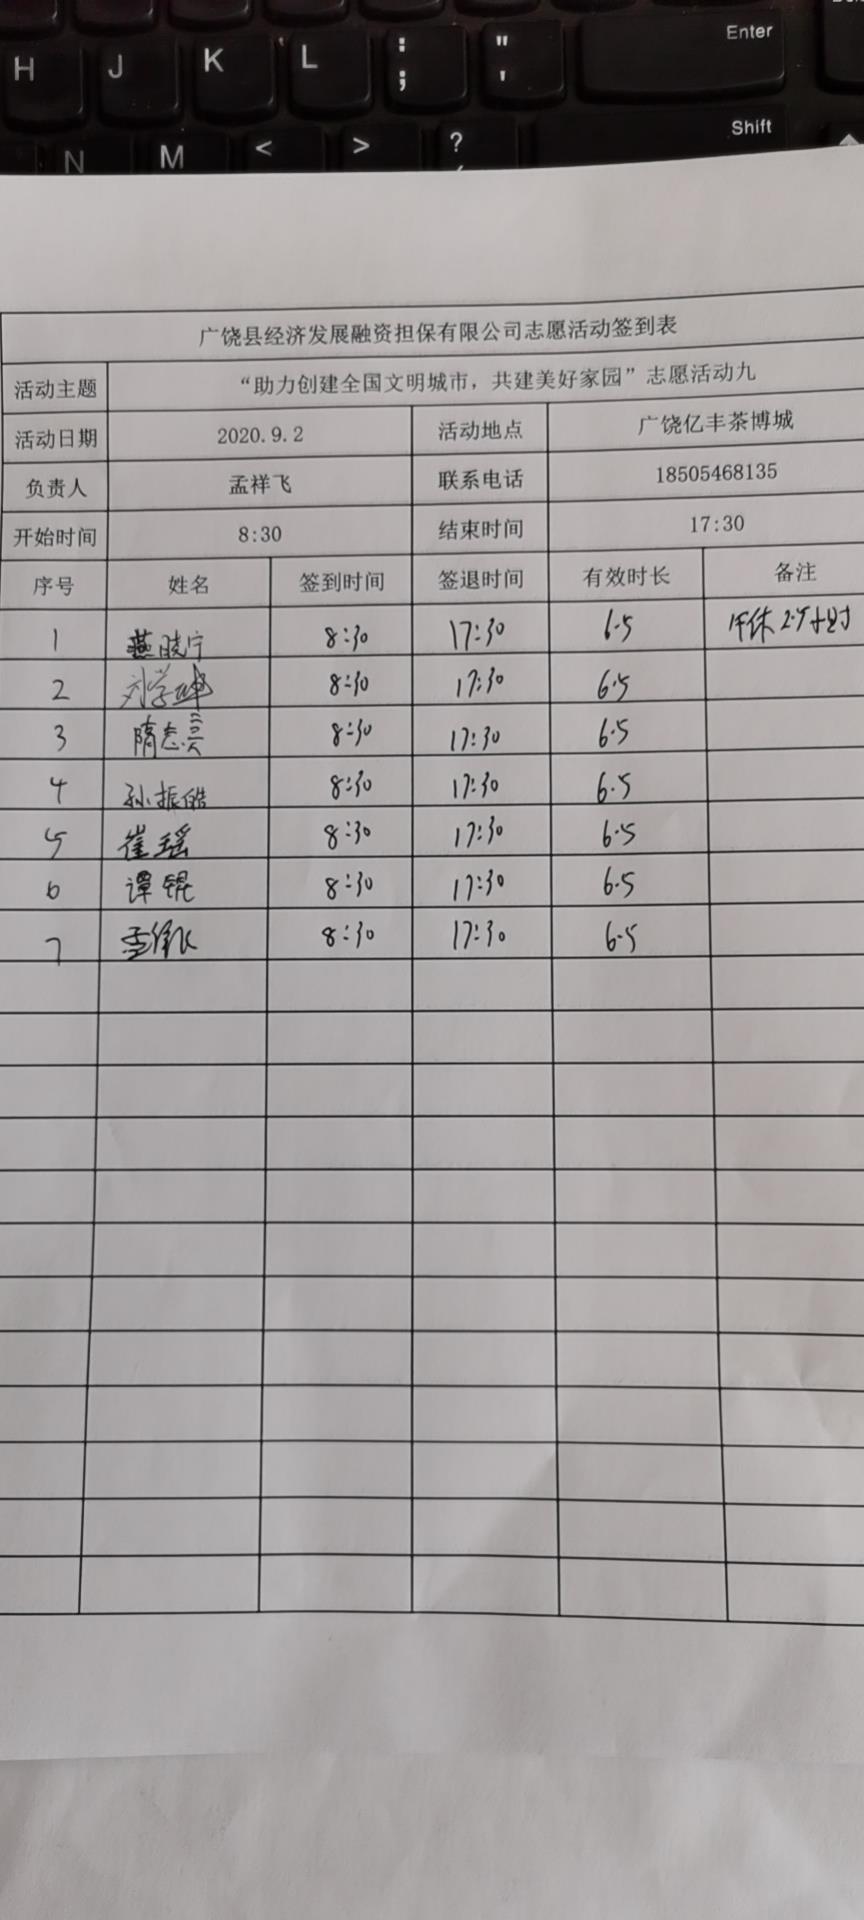 Enter
H J K L : ; " '
Shift
N M < > ?
广饶县经济发展融资担保有限公司志愿活动签到表
活动主题 “助力创建全国文明城市，共建美好家园”志愿活动九
活动日期 2020.9.2 活动地点 广饶亿丰茶博城
负责人 孟祥飞 联系电话 18505468135
开始时间 8:30 结束时间 17:30
序号 姓名 签到时间 签退时间 有效时长 备注
1 燕晓宁 8:30 17:30 6.5 午休2.5小时
2 刘学坤 8:30 17:30 6.5
3 隋志昊 8:30 17:30 6.5
4 孙振皓 8:30 17:30 6.5
5 崔瑶 8:30 17:30 6.5
6 谭锟 8:30 17:30 6.5
7 8:30 17:30 6.5